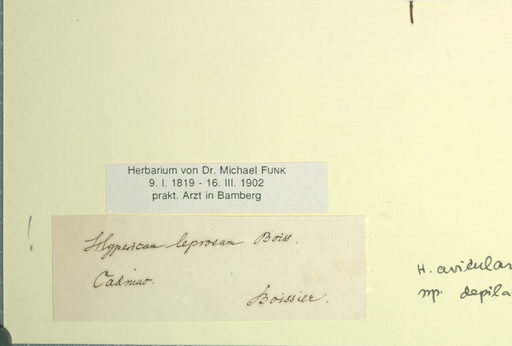 Herbarium von Dr. Michael FUNK
9. I. 1819 - 16. III. 1902
prakt. Arzt in Bamberg
!
Hypericum leprosum Boiss.
Cadmus.
Boissier.
H. avicular
depila